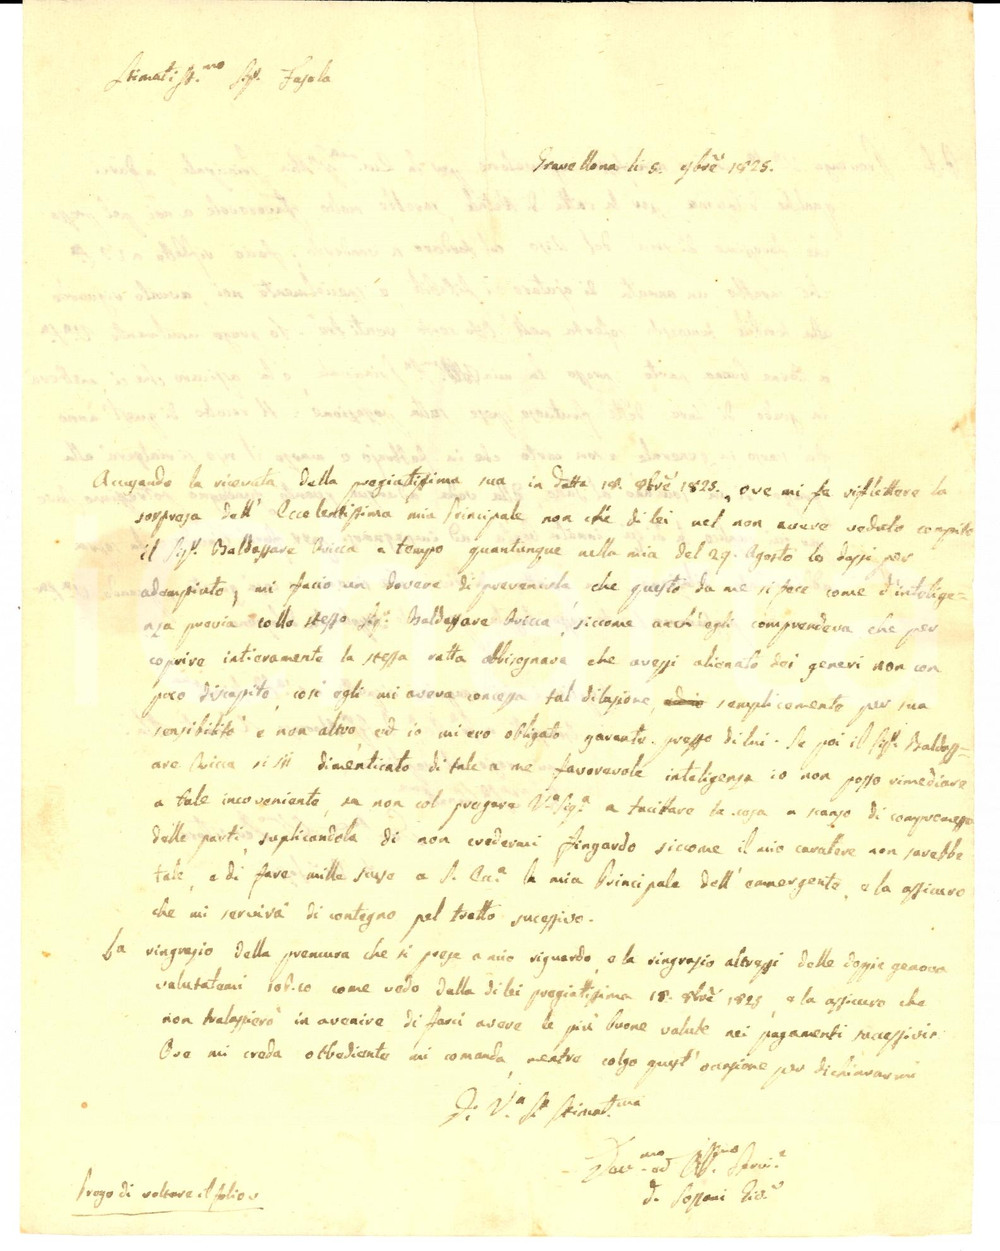 Stimatiss.mo Sig.r Fasola
Gravellona li 5. 9bre 1825.
Accusando la ricevuta della pregiatissima sua in datta 18. 8bre 1825., ove mi fa riflettere la
sorpresa dell' Eccelentissima mia Principale non che di lei nel non avere veduto compito
il Sig.r Baldassare Bricca a tempo quantunque nella mia del 29. Agosto lo dassi per
adempiuto; mi faccio un dovere di prevenirla che questo da me si fece come d'intelige=
nza previa collo stesso Sig.r Baldassare Bricca, siccome anch'egli comprendeva che per
coprire intieramente la stessa ratta abbisognava che avessi alienato dei generi non con
poco discapito, così egli mi aveva concessa tal dilazione semplicemente per sua
sensibilità e non altro, ed io mi ero obligato garante presso di lui. Se poi il Sig.r Baldass=
are Bricca si è dimenticato di tale a me favorevole inteligenza io non posso rimediare
a tale inconveniente, se non col pregare V.a Sig.a a tacittare la cosa a scanso di compromesse
delle parti, suplicandola di non credermi fingardo siccome il mio carattere non sarebbe
tale, e di fare mille scuse a S. Ecc.a la mia Principale dell' emergente, e la assicuro
che mi servirà di contegno pel tratto sucessivo.
La ringrazio della premura che si prese a mio riguardo, e la ringrazio altressì delle doppie genova
valutatemi come vedo dalla di lei pregiatissima 18. 8bre 1825, e la assicuro che
non tralascierò in avenire di farci avere le più buone valute nei pagamenti successivi.
Ove mi creda obbediente mi comandi, mentre colgo quest' occasione per dichiararmi
Di V.a S.a Stimat.ma
Dev.mo ed Obb.mo Servi.e
Prego di voltare il folio